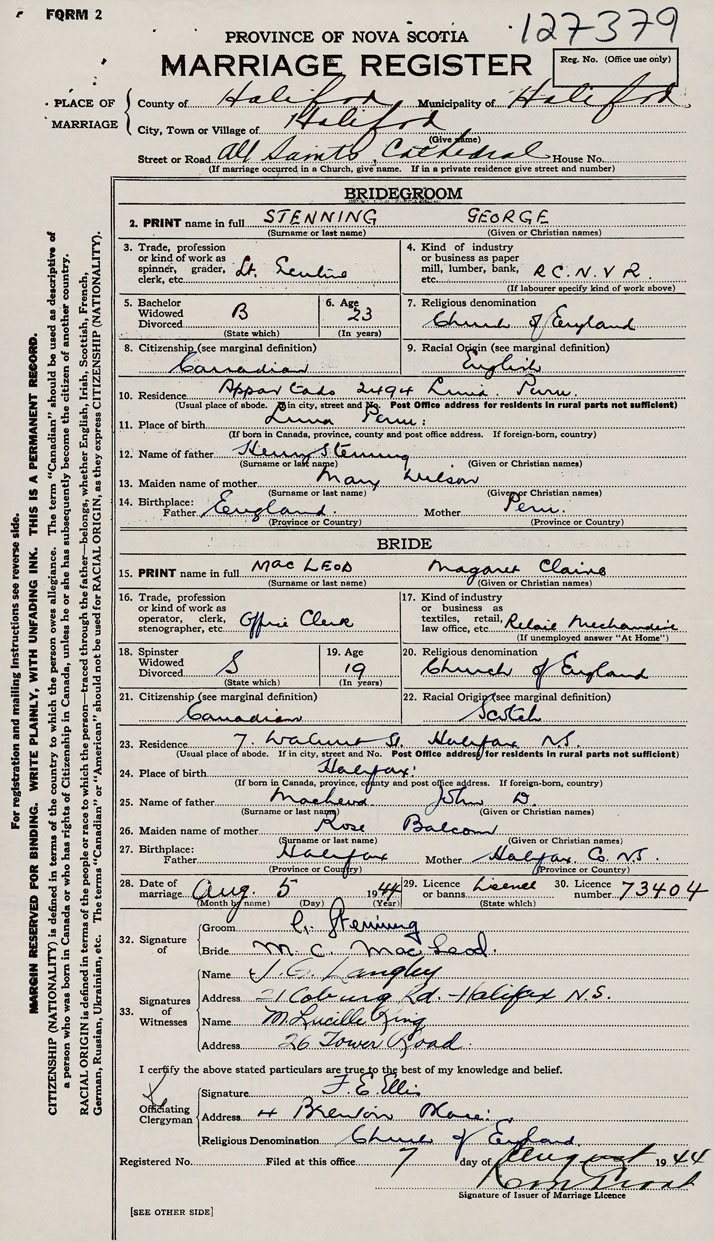 FORM 2
127379
PROVINCE OF NOVA SCOTIA
MARRIAGE REGISTER
Reg. No. (Office use only)
PLACE OF MARRIAGE
County of Halifax Municipality of Halifax
City, Town or Village of Halifax
(Give name)
Street or Road All Saints Cathedral House No.
(If marriage occurred in a Church, give name. If in a private residence give street and number)
BRIDEGROOM
2. PRINT name in full STENNING GEORGE
(Surname or last name) (Given or Christian names)
3. Trade, profession or kind of work as spinner, grader, clerk, etc. Lt.
4. Kind of industry or business as paper mill, lumber, bank, etc. R.C.N.V.R.
(If labourer specify kind of work above)
5. Bachelor Widowed Divorced B
(State which)
6. Age 23
(In years)
7. Religious denomination
Church of England
8. Citizenship (see marginal definition)
Canadian
9. Racial Origin (see marginal definition)
English
10. Residence 2494 Lima. Peru.
(Usual place of abode. If in city, street and No. Post Office address for residents in rural parts not sufficient)
11. Place of birth Lima Peru:
(If born in Canada, province, county and post office address. If foreign-born, country)
12. Name of father Henry Stenning
(Surname or last name) (Given or Christian names)
13. Maiden name of mother Mary Wilson
(Surname or last name) (Given or Christian names)
14. Birthplace:
Father England. Mother Peru.
(Province or Country) (Province or Country)
BRIDE
15. PRINT name in full MacLEOD Magaret Claire
(Surname or last name) (Given or Christian names)
16. Trade, profession or kind of work as operator, clerk, stenographer, etc. Office Clerk
17. Kind of industry or business as textiles, retail, law office, etc. Retail
(If unemployed answer "At Home")
18. Spinster Widowed Divorced S
(State which)
19. Age 19
(In years)
20. Religious denomination
Church of England
21. Citizenship (see marginal definition)
Canadian
22. Racial Origin (see marginal definition)
Scotch
23. Residence 7. Walnut St. Halifax N.S.
(Usual place of abode. If in city, street and No. Post Office address for residents in rural parts not sufficient)
24. Place of birth Halifax:
(If born in Canada, province, county and post office address. If foreign-born, country)
25. Name of father John D.
(Surname or last name) (Given or Christian names)
26. Maiden name of mother Rose Balcom
(Surname or last name) (Given or Christian names)
27. Birthplace:
Father Halifax Mother Halifax. Co. N.S.
(Province or Country) (Province or Country)
28. Date of marriage Aug. 5 1944
(Month by name) (Day) (Year)
29. Licence or banns
(State which)
30. Licence number 73404
32. Signature of
Groom G. Stenning
Bride M. C. MacLeod.
33. Signatures of Witnesses
Name J. G. Langley
Address 21 Coburg Rd. - Halifax N.S.
Name M. Lucille King
Address 26 Tower Road.
I certify the above stated particulars are true to the best of my knowledge and belief.
Officiating Clergyman
Signature F. E. Ellis
Address 4 Brenton Place:
Religious Denomination Church of England.
Registered No. Filed at this office 7 day of August 1944
Signature of Issuer of Marriage Licence
[SEE OTHER SIDE]
For registration and mailing instructions see reverse side.
MARGIN RESERVED FOR BINDING. WRITE PLAINLY, WITH UNFADING INK. THIS IS A PERMANENT RECORD.
CITIZENSHIP (NATIONALITY) is defined in terms of the country to which the person owes allegiance. The term "Canadian" should be used as descriptive of
a person who was born in Canada or who has rights of Citizenship in Canada, unless he or she has subsequently become the citizen of another country.
RACIAL ORIGIN is defined in terms of the people or race to which the person—traced through the father—belongs, whether English, Irish, Scottish, French,
German, Russian, Ukrainian, etc. The terms "Canadian" or "American" should not be used for RACIAL ORIGIN, as they express CITIZENSHIP (NATIONALITY).